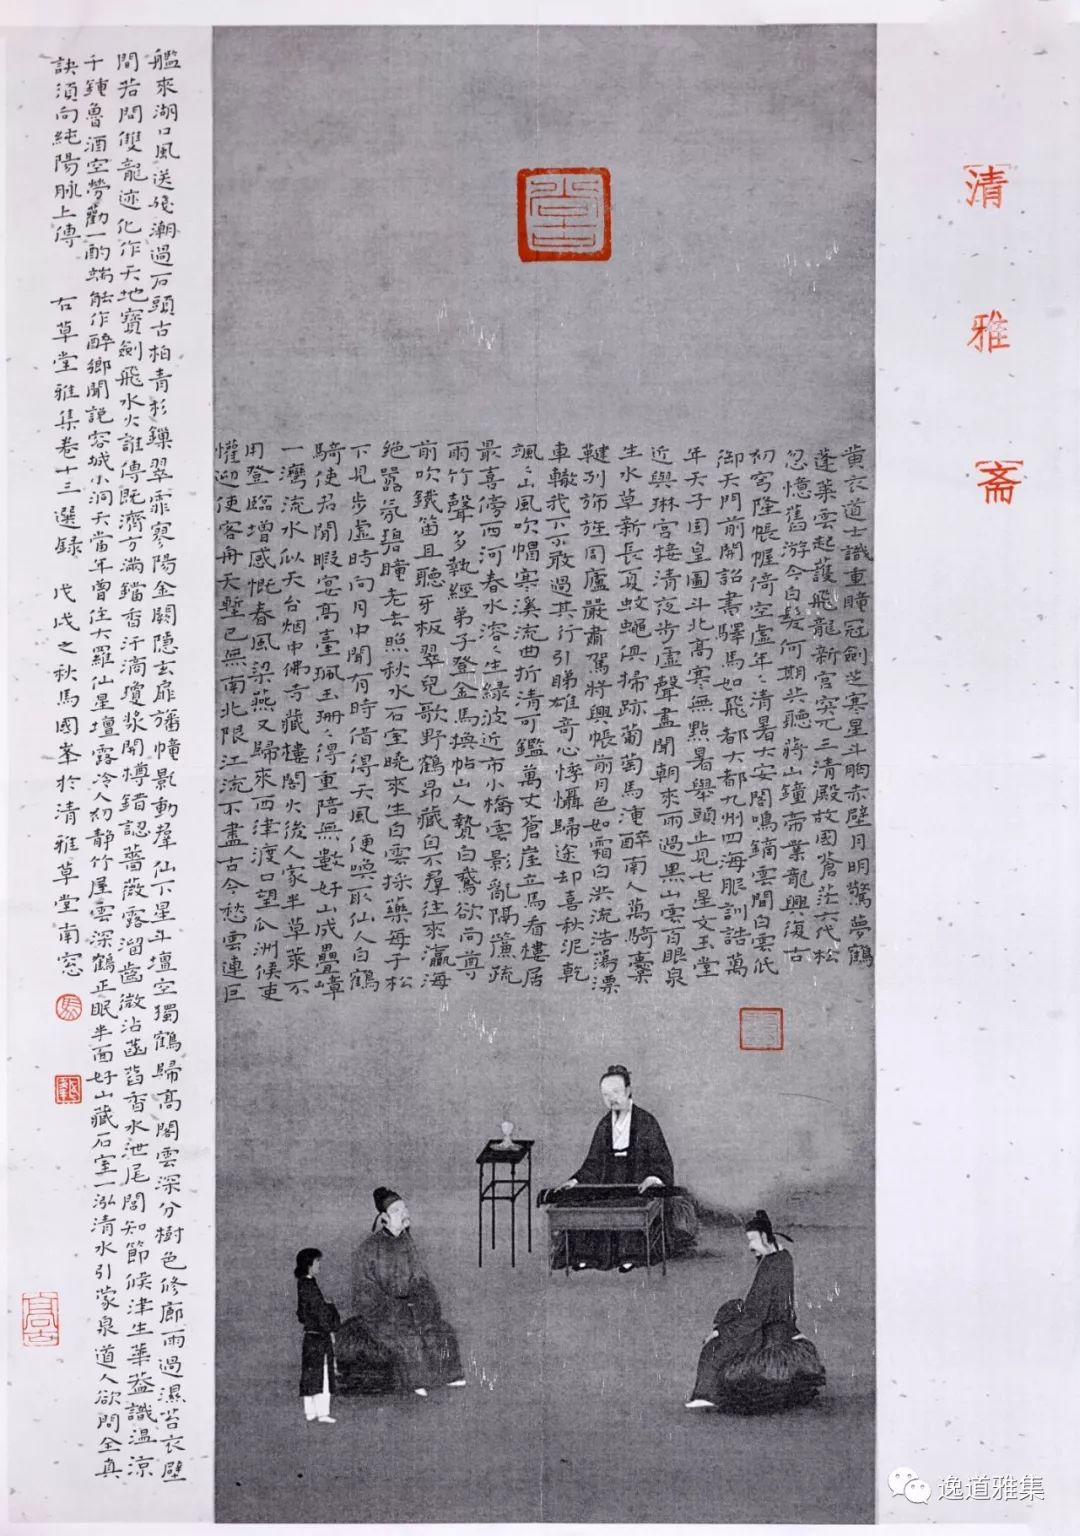 清雅斋
黄衣道士識重瞳冠劍芝寒星斗胸赤壁月明驚夢鶴
蓬萊雲起護飛龍新宮突兀三清殿故國蒼茫六代松
忽憶舊游今白髮何期共聽蔣山鐘帝業龍興復古
初穹隆帳幄倚空虛年〻清暑大安閣鳴鏑雲間白雲低
御天門前開詔書驛馬如飛都大都九州四海服訓誥萬
年天子固皇圖斗北高寒無點暑舉頭止見七星文玉堂
近與琳宮接清夜步虛聲盡聞朝來雨過黑山雲百眼泉
生水草新長夏蚊蠅俱掃跡葡萄馬湩醉南人萬騎橐
鞬列旆旌周廬嚴肅駕將興帳前月色如霜白洪流浩蕩漂
車轍我不敢過其行引睇雄奇心悸懾歸途却喜秋泥乾
颯〻風吹帽寒溪流曲折清可鑑萬丈蒼崖立馬看樓居
最喜傍西河春水溶〻生綠波近市小橋雲影亂隔簾疏
雨竹聲多執經弟子登金馬換帖山人贄白鵞欲向尊
前吹鐵笛且聽牙板翠兒歌野鶴昂藏自不羣往來瀛海
絕囂氛碧瞳老去照秋水石室曉來生白雲採藥每于松
下見步虛時向月中聞有時借得天風便喚取仙人白鶴
騎使君閒暇宴高臺珮玉珊〻得重陪無數好山成疊嶂
一灣流水似天台烟中佛寺藏樓閣火後人家半草萊不
用登臨增感慨春風梁燕又歸來西津渡口望瓜洲候吏
懽迎使客舟天塹已無南北限江流不盡古今愁雲連巨
艦來湖口風送殘潮過石頭古柏青杉鏁翠霏寥陽金闕隱玄扉旛幢影動羣仙下星斗壇空獨鶴歸高閣雲深分樹色修廊雨過濕苔衣壁
間若問雙龍迹化作天地寶劍飛水火誰傳既濟方滿鐺香汗滴瓊漿開樽錯認薔薇露溜齒微沾菡萏香水泄尾閭知節候津生華益識溫涼
千鍾魯酒空勞勸一酌端能作醉鄉聞說容城小洞天當年曾住大羅仙星壇露冷人初靜竹屋雲深鶴正眠半面好山藏石室一泓清水引蒙泉道人欲問全真
訣須向純陽脉上傳 右草堂雅集卷十三選録 戊戌之秋馬國峯於清雅草堂南窓
馬
逸道雅集